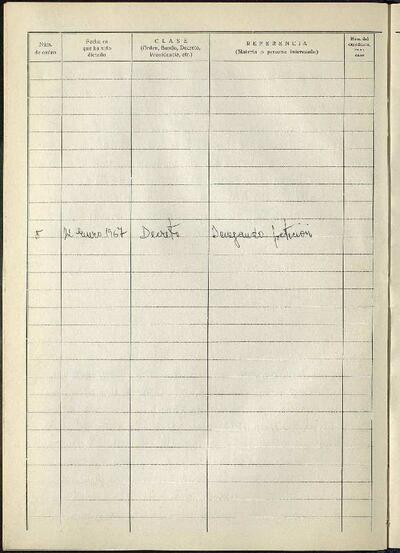 Núm.
de orden
Fecha en
que ha sido
dictado
CLASE
(Orden, Bando, Decreto,
Providencia, etc.)
REFERENCIA
(Materia o persona interesada)
Núm. del
expediente
caso
5 Enero 1967 Decreto Denegando petición